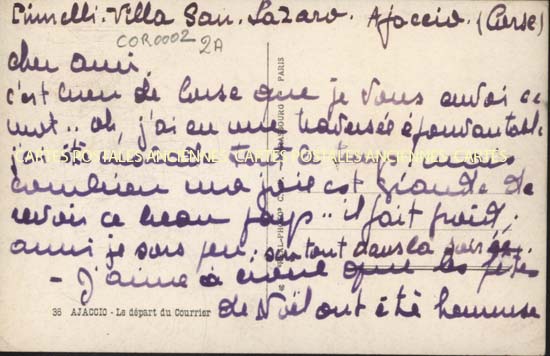 Villa San. Lazaro. Ajaccio. (Corse)
COR0002
2A
cher ami,
c'est bien de Corse que je vous envoi ce
mot.. oh, j'ai eu une traversée épouvantable
CARTES POSTALES ANCIENNES CARTES POSTALES ANCIENNES CARTES
combien ma joie est Grande de
revoir ce beau pays.. il fait froid;
aussi je sors peu, surtout dans la soirée.
- J'aime à croire que les fêtes
de Noël ont été heureuse
36 AJACCIO - Le départ du Courrier
PARIS